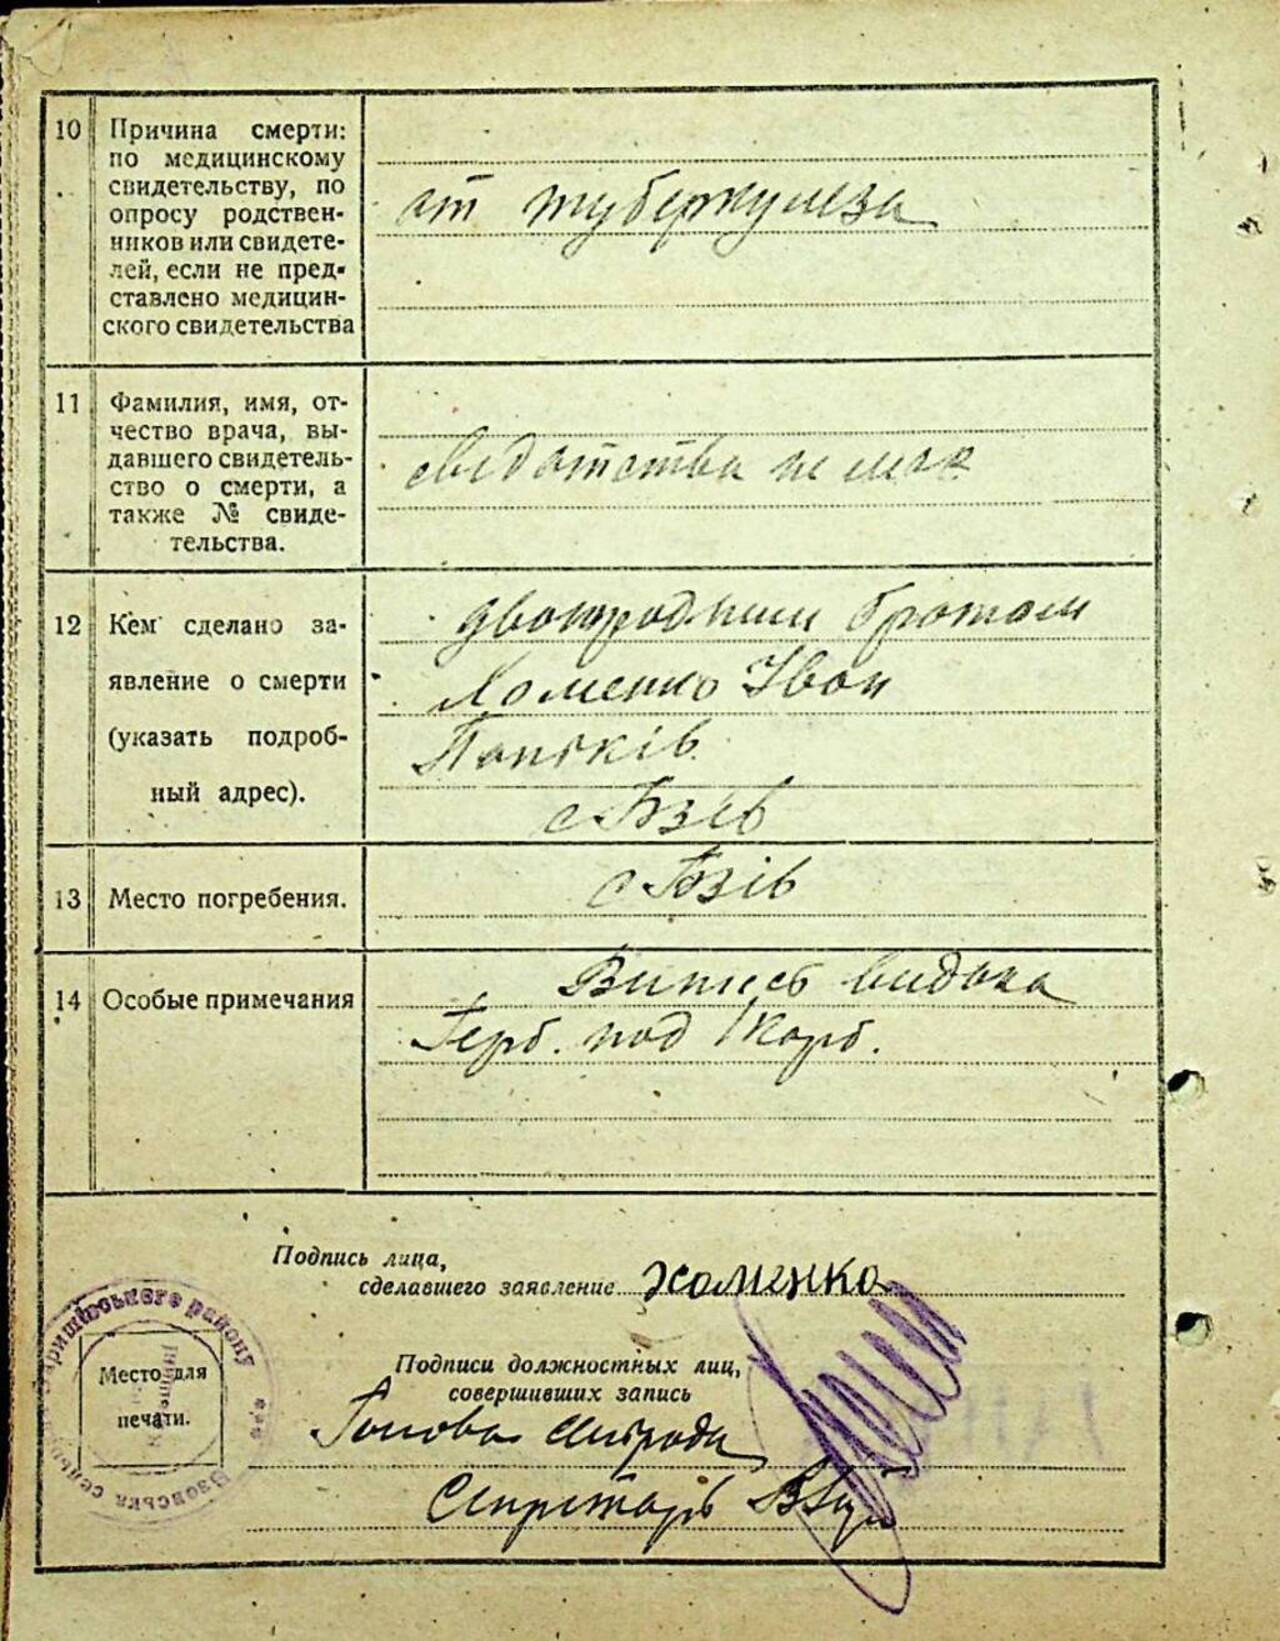 10 Причина смерти:
по медицинскому
свидетельству, по
опросу родствен-
ников или свидете-
лей, если не пред-
ставлено медицин-
ского свидетельства
от туберкулеза
11 Фамилия, имя, от-
чество врача, вы-
давшего свидетель-
ство о смерти, а
также № свиде-
тельства.
свідотства не має
12 Кем сделано за-
явление о смерти
(указать подроб-
ный адрес).
двоюродним братом
Хоменко Іван
с Бзів
13 Место погребения.
с Бзів
14 Особые примечания
Випись видана
Герб. под 1 карб.
Подпись лица,
сделавшего заявление Хоменко
Подписи должностных лиц,
совершивших запись
Голова сільради
Секретарь
Место для
печати.
району
Бзовська